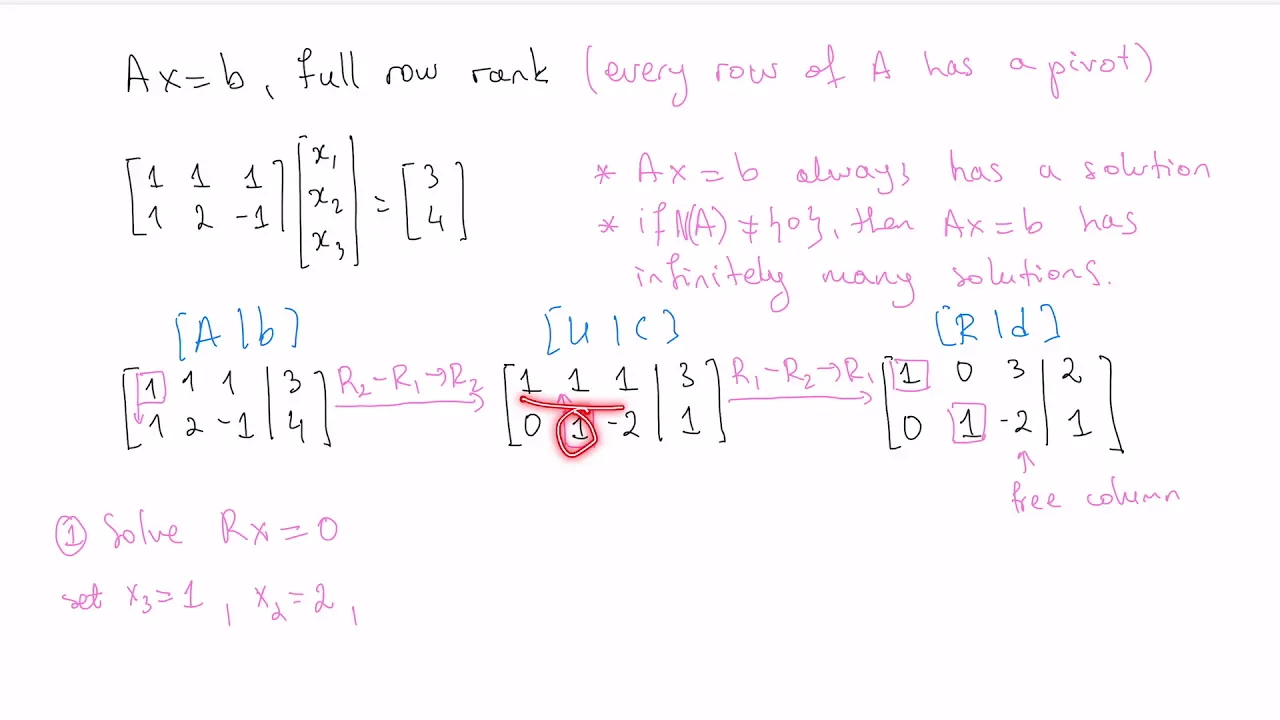 Ax = b, full row rank (every row of A has a pivot)
[1 1 1; 1 2 -1] [x₁; x₂; x₃] = [3; 4]
* Ax = b always has a solution
* if N(A) ≠ {0}, then Ax = b has
infinitely many solutions.
[A | b] [U | C] [R | d]
[1 1 1 | 3; 1 2 -1 | 4] R₂ - R₁ → R₂ [1 1 1 | 3; 0 1 -2 | 1] R₁ - R₂ → R₁ [1 0 3 | 2; 0 1 -2 | 1]
↑ free column
① Solve Rx = 0
set x₃ = 1, x₂ = 2,